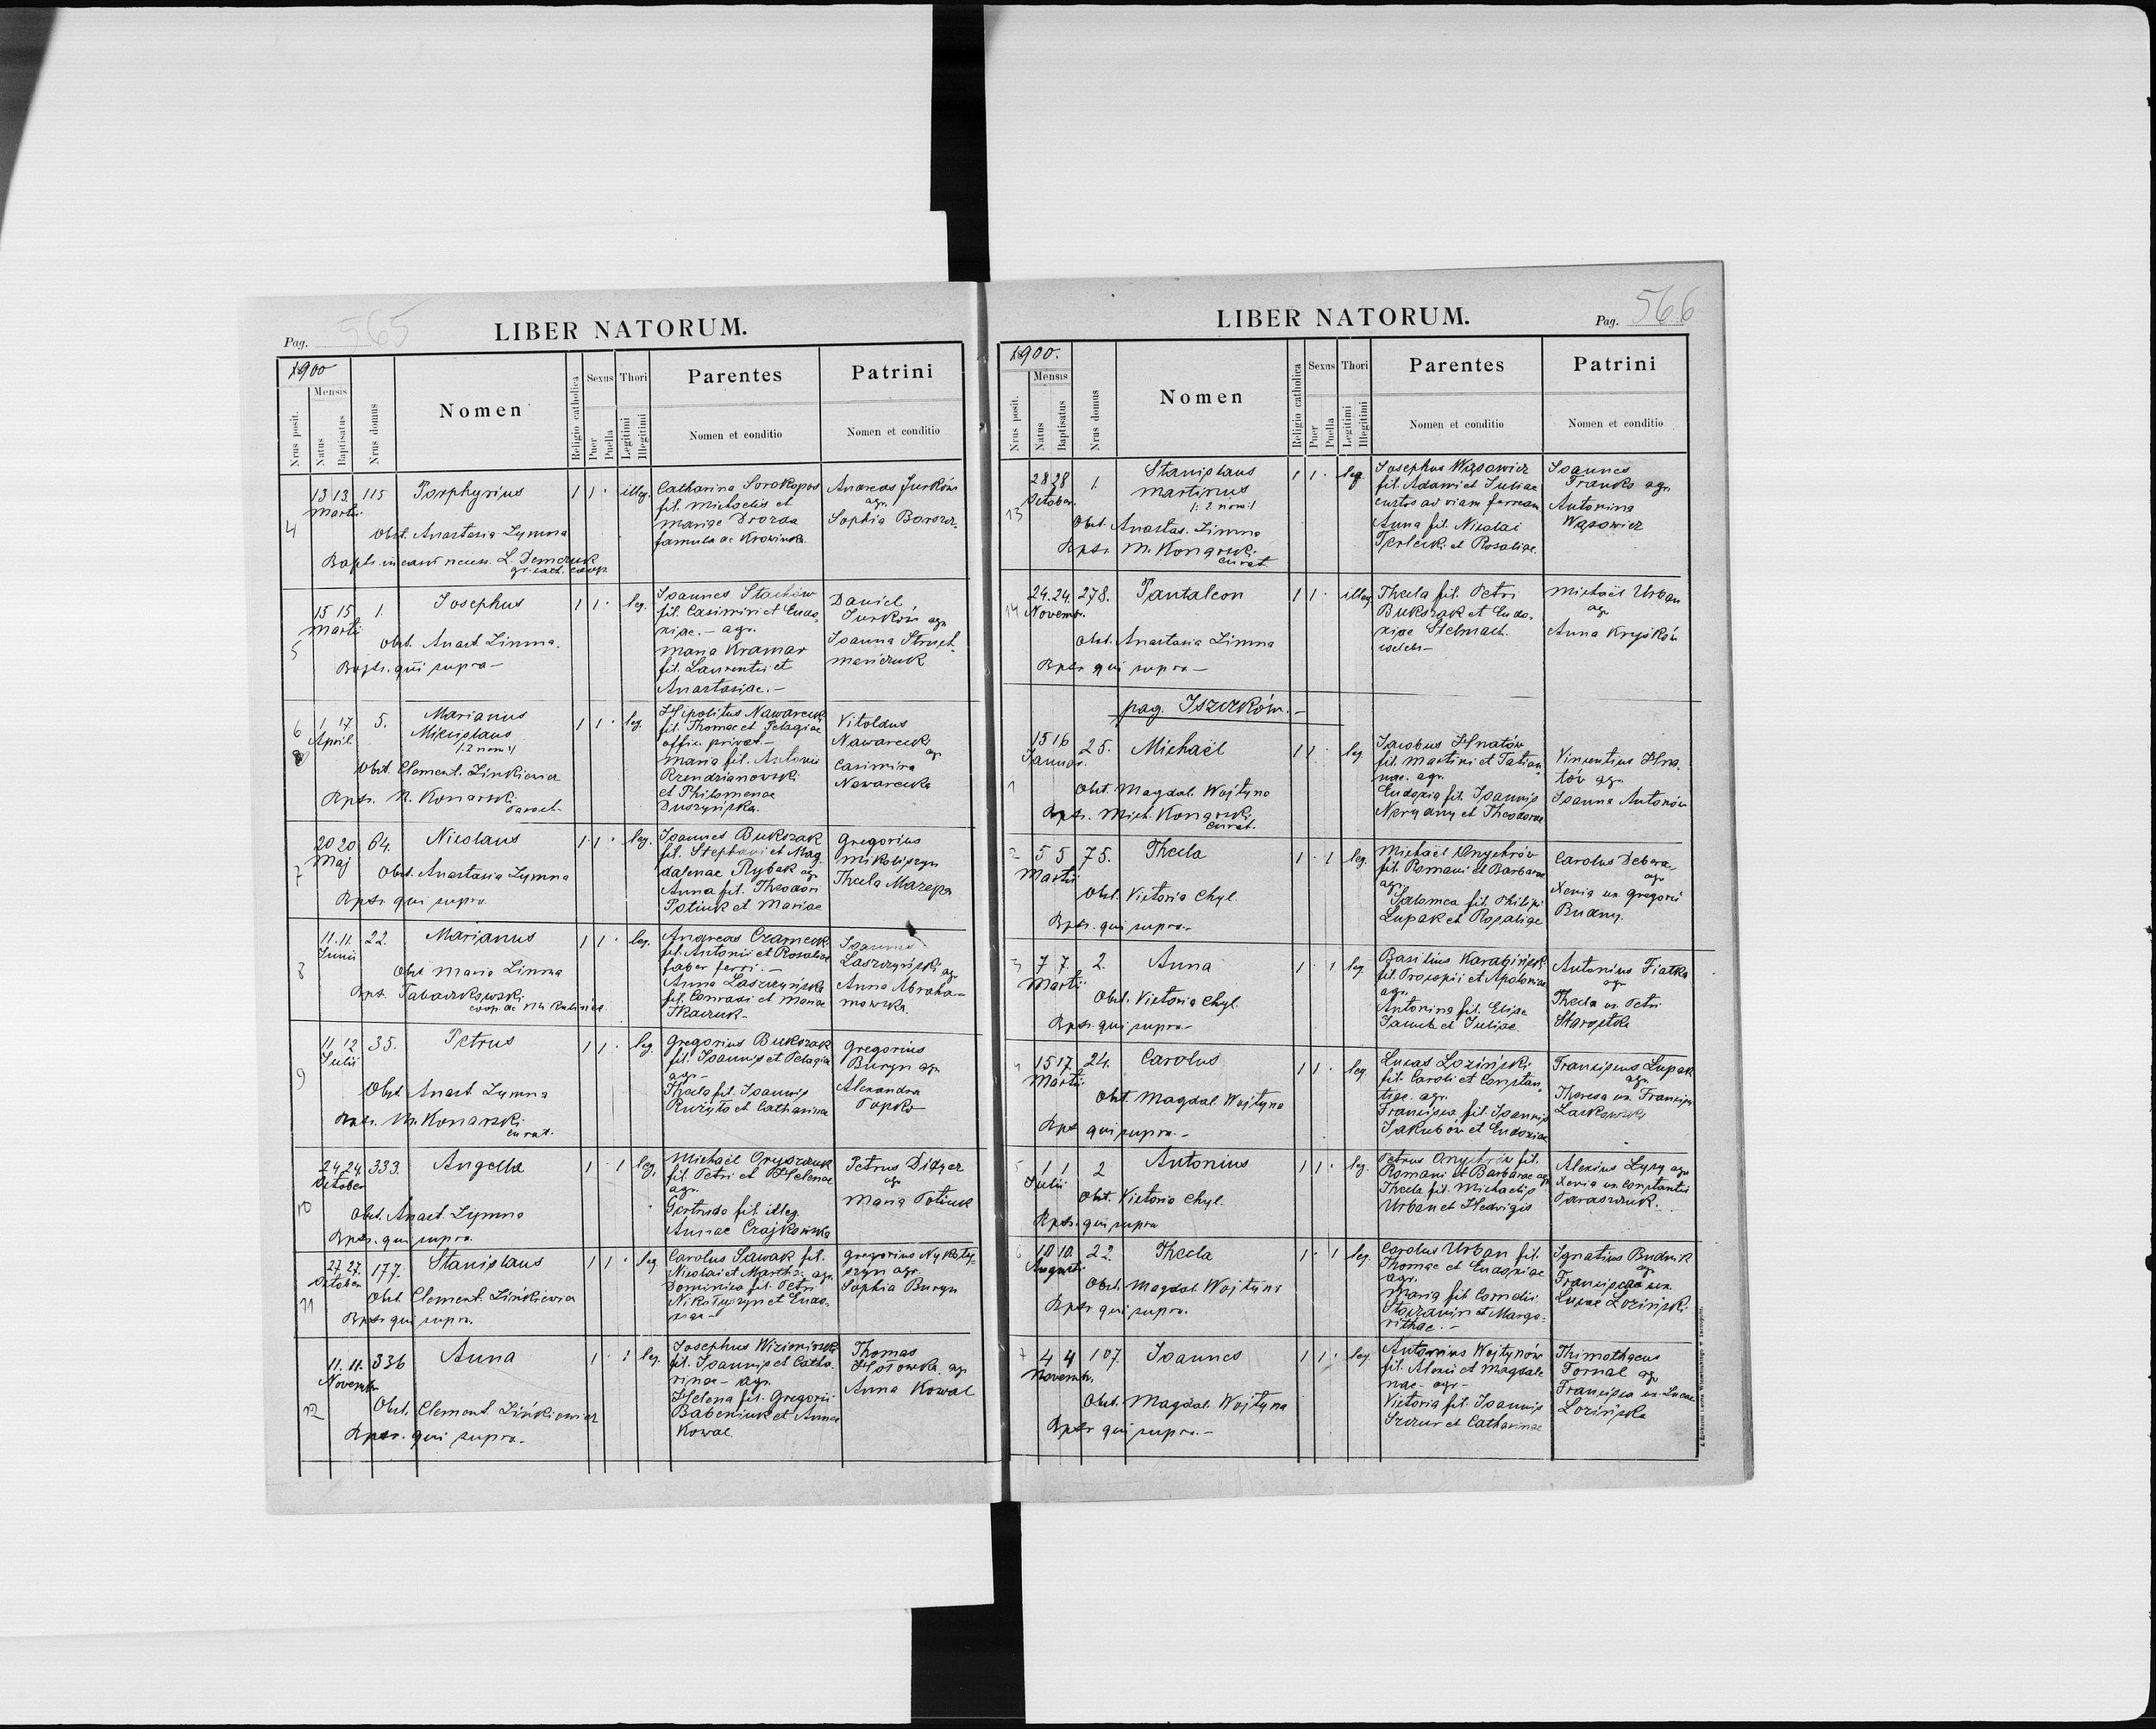 Pag. 565
LIBER NATORUM.
1900
Nrus posit.
Mensis
Natus
Baptisatus
Nrus domus
Nomen
Religio catholica
Sexus
Puer
Puella
Thori
Legitimi
Illegitimi
Parentes
Nomen et conditio
Patrini
Nomen et conditio
4
13 13 115 Porphyrius 1 1 · illeg.
Martii
Obst. Anastasia Zymna
Bapts. in casu necess. L. Demczuk
gr. cath. coop.
Catharina Sorokopas
fil. Michaelis et
Mariae Drozda
famula de Krowinka
Andreas Jurków
agr.
Sophia Barszcz
5
15 15 1. Josephus 1 1 · leg.
Martii
Obst. Anast. Zimna.
Bapts. qui supra –
Joannes Stachów
fil. Casimiri et Eudo-
xiae. – agr.
Maria Kramar
fil. Laurentii et
Anastasiae. –
Daniel
Jurków agr.
Joanna
6
1 17 5. Marianus 1 1 · leg.
April. Micislaus
/: 2 nom :/
Obst. Clement. Zinkiewicz
Bpts. M. Konarski
Hipolitus Nawarecki
fil. Thomae et Pelagiae
offic. privat. –
Maria fil. Antonii
Rzendzianowski
et Philomenae
Duszyńska.
Vitoldus
Nawarecki
agr.
Casimira
Nawarecka
7
20 20 64. Nicolaus 1 1 · leg.
Maj
Obst. Anastasia Zymna
Bpts. qui supra.
Joannes Bukszak
fil. Stephani et Mag
dalenae Rybak agr.
Anna fil. Theodori
Potiuk et Mariae
Gregorius
Mikoliszyn
Thecla Mazepa
8
11. 11. 22. Marianus 1 1 · leg.
Junii
Obst. Maria Zimna
Bpt.
Andreas Czarnecki
fil. Antonii et Rosaliae
faber ferri. –
Anna Laszczyńska
fil. Conradi et Mariae
Tkaczuk –
Joannes
Laszczyński agr.
Anna Abraha-
mowska.
9
11 12 35. Petrus 1 1 · leg.
Julii
Obst. Anast. Zymna
Bpts. M. Konarski
curat.
Gregorius Bukszak
fil. Joannis et Pelagia
agr. –
Thecla fil. Joannis
Ruzyło et Catharina
Gregorius
Buryn agr.
Alexandra
Popko
10
24 24. 333. Angella 1 · 1 leg.
October
Obst. Anast. Zymna
Bpts. qui supra.
Michaël Gryszczuk
fil. Petri et Helenae
agr.
Gertruda fil. illeg.
Annae Czajkowska
Petrus Didyer
agr.
Maria Potiuk
11
27 27. 177. Stanislaus 1 1 · leg.
October
Obst. Clement. Zińkiewicz
Bpts. qui supra.
Carolus Sawak fil.
Nicolai et Martha. agr.
Dominica fil. Petri
Nikołyszyn et Eudo-
xiae –
Gregorius Nykoły-
szyn agr.
Sophia Buryn
12
11. 11. 336 Anna 1 · 1 leg.
Novemb.
Obst. Clement. Zińkiewicz
Bpts. qui supra.
Josephus
fil. Joannis et Catha-
rinae – agr.
Helena fil. Gregorii
Babeniuk et Anna
Kowal
Thomas
Hołowka agr.
Anna Kowal
LIBER NATORUM.
Pag. 566
1900.
Nrus posit.
Mensis
Natus
Baptisatus
Nrus domus
Nomen
Religio catholica
Sexus
Puer
Puella
Thori
Legitimi
Illegitimi
Parentes
Nomen et conditio
Patrini
Nomen et conditio
13
28 28 1. Stanislaus 1 1 · leg.
October Martinus
/: 2 nom :/
Obst. Anastas. Zimna
Bpts. M. Konarski
curat.
Josephus Wąsowicz
fil. Adami et Juliae
custos ad viam ferream
Anna fil. Nicolai
et Rosaliae.
Joannes
Franko agr.
Antonina
Wąsowicz
14
24. 24. 278. Pantaleon 1 1 · illeg
Novemb.
Obst. Anastasia Zimna
Bpts qui supra –
Thecla fil. Petri
Bukszak et Eudo-
xiae Stelmach.
Michaël Urban
agr.
Anna Kryśków
pag. Iszczków. –
1
15 16 25. Michaël 1 1 · leg.
Januar.
Obst. Magdal. Wojtyna
Bpts. Mich. Konarski
curat.
Jacobus Hnatów
fil. Martini et Tatian-
nae. agr.
Eudoxia fil. Joannis
Nargany et Theodorae
Vincentius Hna-
tów agr.
Joanna Antonów
2
5 5 75. Thecla 1 · 1 leg.
Martii
Obst. Victoria Chyl.
Bpts. qui supra. –
Michaël Onychrów
fil. Romani et Barbarae
agr.
Salomea fil. Philipi
Lupak et Rosaliae
Carolus Debera
agr.
Xenia ux. Gregorii
Budny.
3
7 7. 2. Anna 1 · 1 leg.
Martii
Obst. Victoria Chyl.
Bpts. qui supra –
Basilius Karabiński
fil. Procopii et Apolonia
agr.
Antonina fil. Eliae
Jacuk et Juliae
Antonius Fiatka
agr.
Thecla ux. Petri
4
15 17. 24. Carolus 1 1 · leg.
Martii
Obst. Magdal. Wojtyna
Bpt qui supra. –
Lucas Loziński
fil. Caroli et Constan-
tiae. agr.
Francisca fil. Joannis
Jakubów et Eudoxiae
Franciscus Lupak
agr.
Theresa ux. Francisci
Laskowski
5
1 1 2 Antonius 1 1 · leg.
Julii
Obst. Victoria Chyl.
Bpts. qui supra
Petrus Onychrów fil.
Romani et Barbarae agr.
Thecla fil. Michaelis
Urban et Hedvigis
Alexius Lysy agr.
Xenia ux. Constantii
Taraszczuk.
6
10 10. 22. Thecla 1 · 1 leg.
Augusti
Obst. Magdal. Wojtyna
Bpts qui supra.
Carolus Urban fil.
Thomae et Eudoxiae
agr.
Maria fil. Cornelii
et Marga-
rithae. –
Ignatius Budnik
agr.
Francisca ux.
Lucae Loziński.
7
4 4 107. Joannes 1 1 · leg.
Novemb.
Obst. Magdal. Wojtyna
Bpts qui supra. –
Antonius Wojtynów
fil. Alexii et Magdale
nae – agr. –
Victoria fil. Joannis
Szczur et Catharinae
Thimothaeus
Fornal agr.
Francisca ux. Lucae
Lozińska